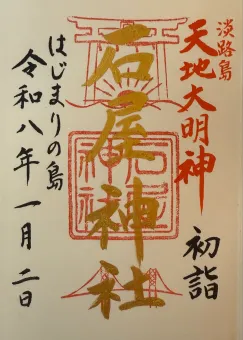 淡路島
天地大明神
初詣
石屋神社
はじまりの島
令和八年一月二日